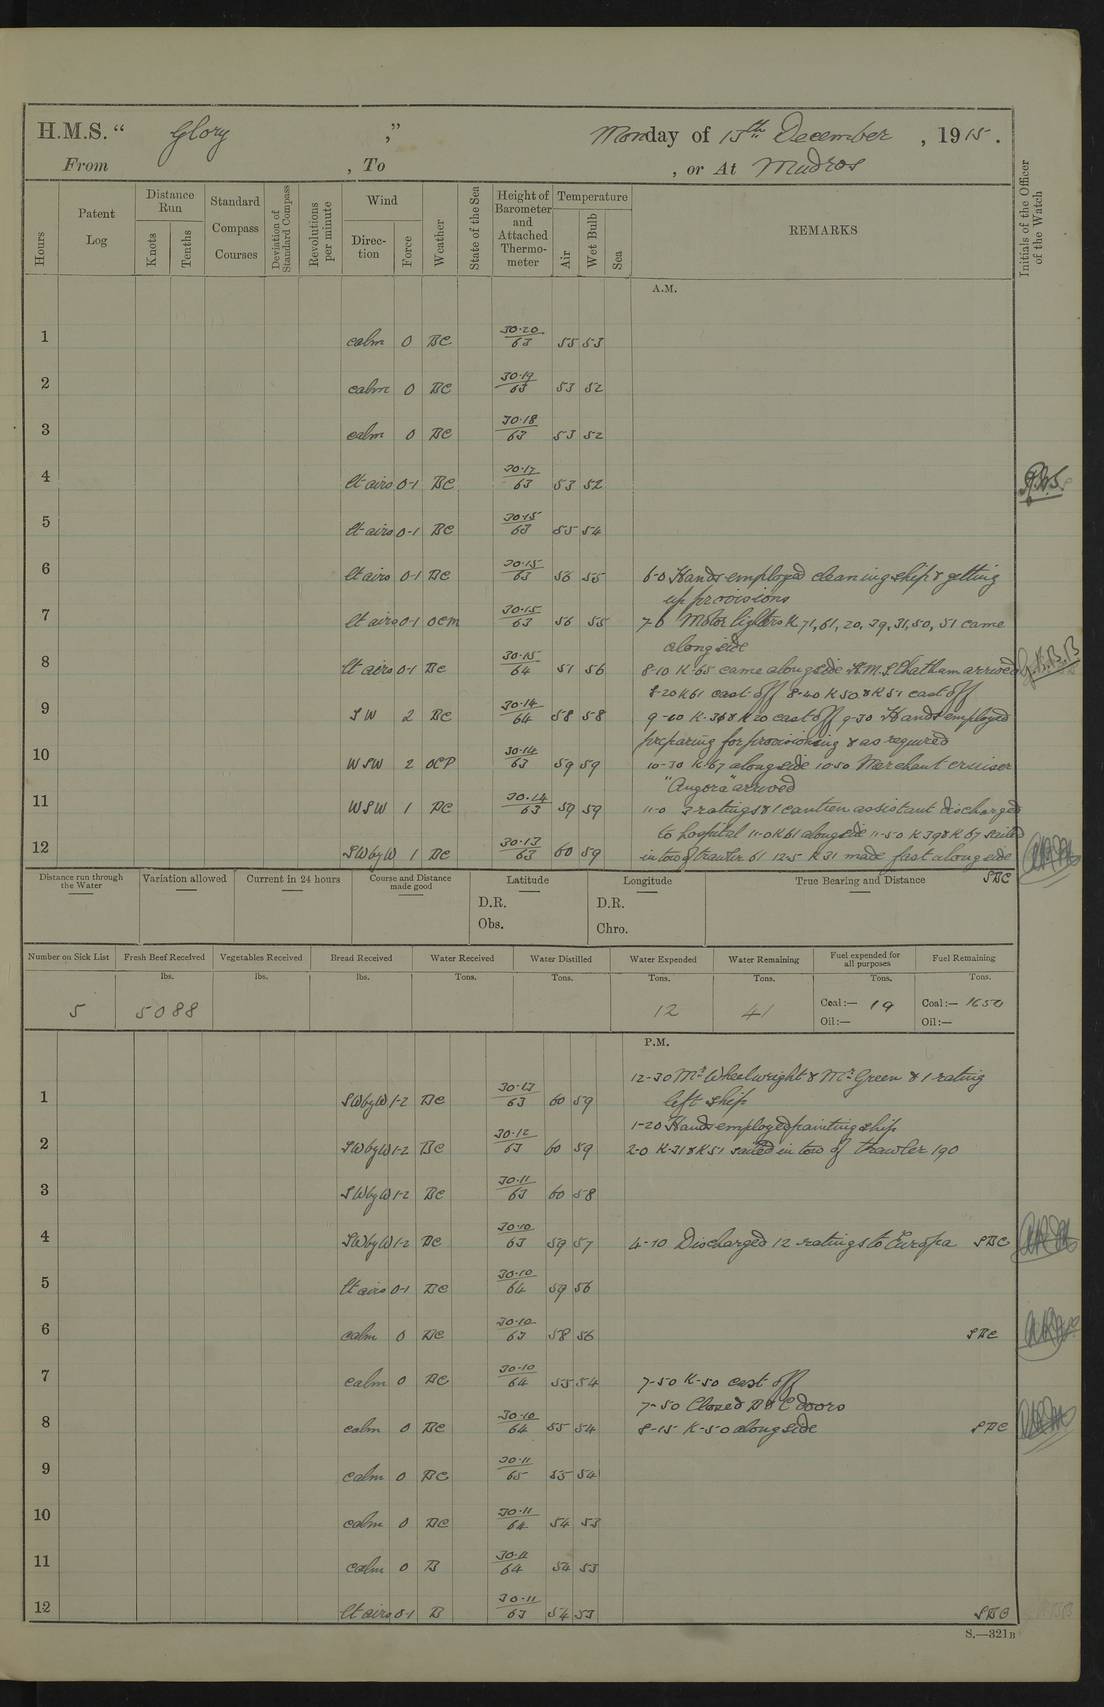 H.M.S. “ Glory ,”
Monday of 15th December , 1915.
From , To , or At Mudros
Hours
Patent Log
Distance Run
Knots
Tenths
Standard Compass Courses
Deviation of Standard Compass
Revolutions per minute
Wind
Direc-tion
Force
Weather
State of the Sea
Height of Barometer and Attached Thermo-meter
Temperature
Air
Wet Bulb
Sea
REMARKS
Initials of the Officer of the Watch
A.M.
1 calm 0 BC 30·20/63 55 53
2 calm 0 BC 30·19/63 53 52
3 calm 0 BC 30·18/63 53 52
4 lt airs 0-1 BC 30·17/63 53 52
5 lt airs 0-1 BC 30·15/63 55 54
6 lt airs 0-1 BC 30·15/63 56 55 6-0 Hands employed cleaning ship & getting
up provisions
7 lt airs 0-1 ocm 30·15/63 56 55 7-0 Motor lighters K 71, 61, 20, 39, 31, 50, 51 came
alongside
8 lt airs 0-1 BC 30·15/64 51 56 8-10 K-65 came alongside H.M.S. Chatham arrived G.B.B.B
8-20 K61 cast off 8-40 K50 & K51 cast off
9 SW 2 BC 30·14/64 58 58 9-10 K-31 & K20 cast off 9-30 Hands employed
preparing for provisioning & as required
10 WSW 2 OCP 30·14/63 59 59 10-30 K-67 alongside 10-50 Merchant cruiser
"Angora" arrived
11 WSW 1 BC 30·14/63 59 59 11-0 3 ratings & 1 canteen assistant discharged
to hospital 11-0 K61 alongside 11-50 K39 & K67 sailed
12 SWbyW 1 BC 30·13/63 60 59 in tow of trawler 61 12-5 K31 made fast alongside
SBC
Distance run through the Water
Variation allowed
Current in 24 hours
Course and Distance made good
Latitude
D.R.
Obs.
Longitude
D.R.
Chro.
True Bearing and Distance
Number on Sick List
Fresh Beef Received
Vegetables Received
Bread Received
Water Received
Water Distilled
Water Expended
Water Remaining
Fuel expended for all purposes
Fuel Remaining
lbs. lbs. lbs. Tons. Tons. Tons. Tons. Tons. Tons.
5 5088 12 41 Coal:— 19 Coal:— 1650
Oil:— Oil:—
P.M.
12-30 Mr Wheelwright & Mr Green & 1 rating
1 SWbyW 1-2 BC 30·13/63 60 59 left ship
1-20 Hands employed painting ship
2 SWbyW 1-2 BC 30·12/63 60 59 2-0 K-31 & K51 sailed in tow of trawler 190
3 SWbyW 1-2 BC 30·11/63 60 58
4 SWbyW 1-2 BC 30·10/63 59 57 4-10 Discharged 12 ratings to Europa SBC
5 lt airs 0-1 BC 30·10/64 59 56
6 calm 0 BC 30·10/63 58 56 SBC
7 calm 0 BC 30·10/64 55 54 7-50 K-50 cast off
7-50 Closed B & C doors
8 calm 0 BC 30·10/64 55 54 8-15 K-50 alongside SBC
9 calm 0 BC 30·11/65 55 54
10 calm 0 BC 30·11/64 54 53
11 calm 0 B 30·11/64 54 53
12 lt airs 0-1 B 30·11/63 54 53 SBC
S.—321B